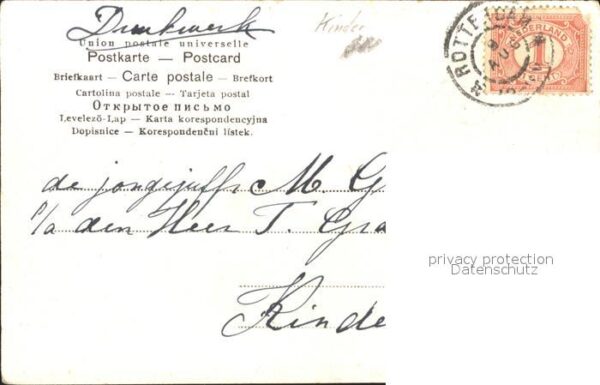 Drukwerk
Kinder
Union postale universelle
Postkarte — Postcard
Briefkaart — Carte postale — Brefkort
Cartolina postale — Tarjeta postal
Открытое письмо
Levelező-Lap — Karta korespondencyjna
Dopisnice — Korespondenční listek.
ROTTERDAM
9
AUG
NEDERLAND
1
CENT
de jongejuffr M. G
p/a den Heer T. Gra
privacy protection
Datenschutz
Kinde